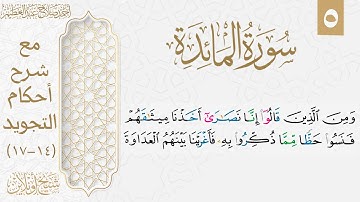 ٥
سُورَةُ المَائِدَةِ
مع
شرح
أحكام
التجويد
(١٤-١٧)
وَمِنَ ٱلَّذِينَ قَالُوٓا۟ إِنَّا نَصَٰرَىٰٓ أَخَذْنَا مِيثَٰقَهُمْ
فَنَسُوا۟ حَظًّا مِّمَّا ذُكِّرُوا۟ بِهِۦ فَأَغْرَيْنَا بَيْنَهُمُ ٱلْعَدَاوَةَ